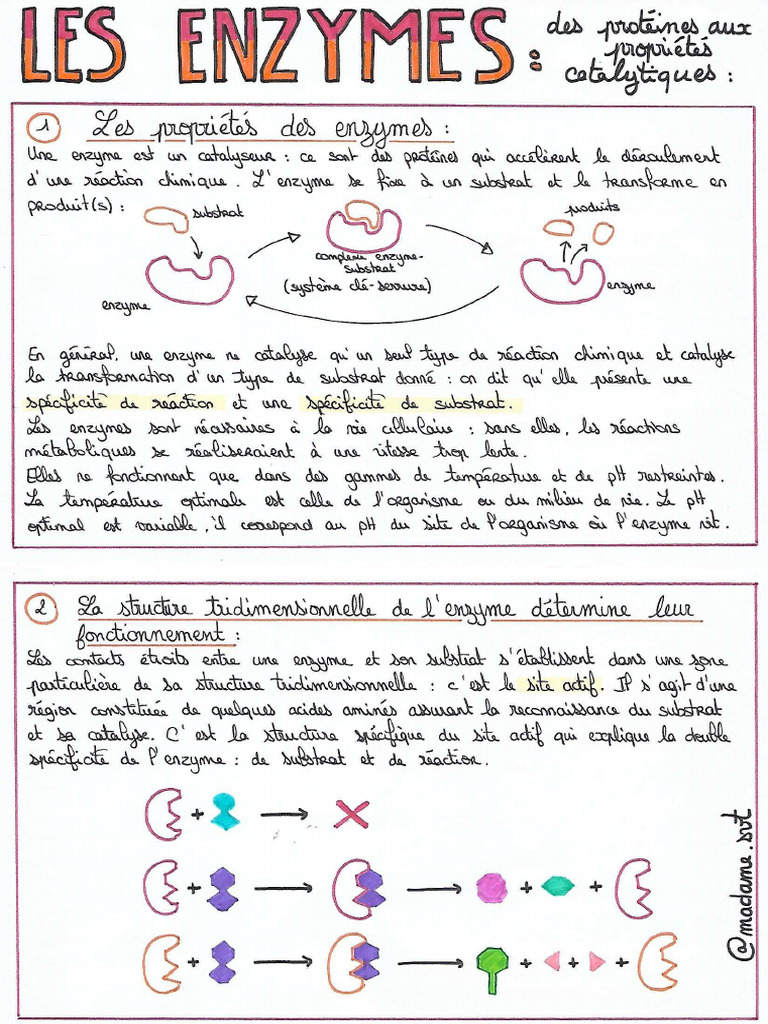 LES ENZYMES :
des protéines aux
propriétés
catalytiques :
1 Les propriétés des enzymes :
Une enzyme est un catalyseur : ce sont des protéines qui accélèrent le déroulement
d'une réaction chimique. L'enzyme se fixe à un substrat et le transforme en
produit(s) :
substrat
produits
complexe enzyme-
substrat
(système clé-serrure)
enzyme
enzyme
En général, une enzyme ne catalyse qu'un seul type de réaction chimique et catalyse
la transformation d'un type de substrat donné : on dit qu'elle présente une
spécificité de réaction et une spécificité de substrat.
Les enzymes sont nécessaires à la vie cellulaire : sans elles, les réactions
métaboliques se réaliseraient à une vitesse trop lente.
Elles ne fonctionnent que dans des gammes de température et de pH restreintes.
La température optimale est celle de l'organisme ou du milieu de vie. Le pH
optimal est variable, il correspond au pH du site de l'organisme où l'enzyme vit.
2 La structure tridimensionnelle de l'enzyme détermine leur
fonctionnement :
Les contacts étroits entre une enzyme et son substrat s'établissent dans une zone
particulière de sa structure tridimensionnelle : c'est le site actif. Il s'agit d'une
région constituée de quelques acides aminés assurant la reconnaissance du substrat
et sa catalyse. C'est la structure spécifique du site actif qui explique la double
spécificité de l'enzyme : de substrat et de réaction.
+
+ + +
+ + + +
@madame.svt